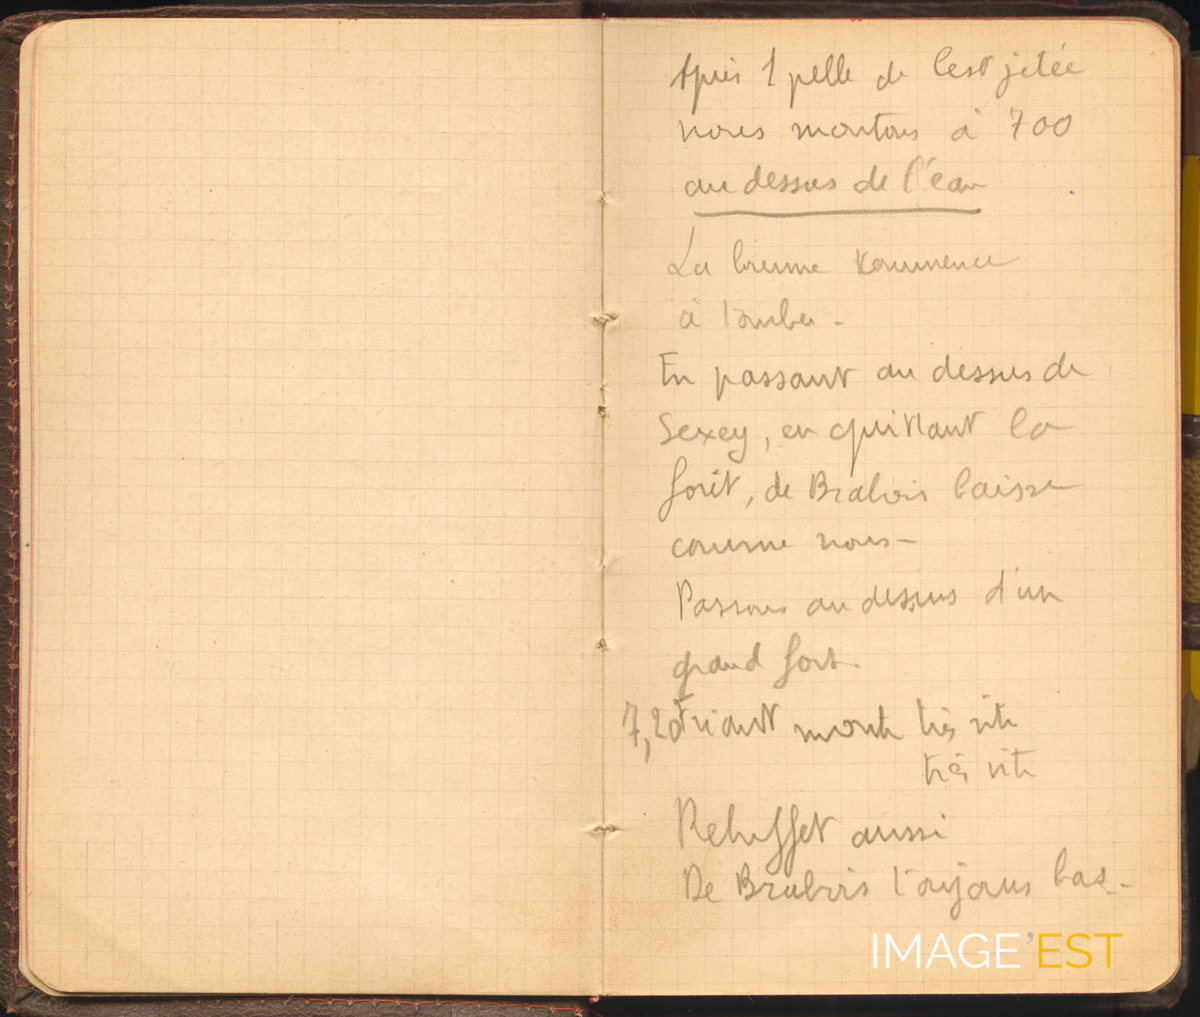 Après 1 pelle de lest jetée
nous montons à 700
au dessus de l'eau
La brume commence
à tomber -
En passant au dessus de
Sexey, en quittant la
forêt, de Brabois baisse
comme nous -
Passons au dessus d'un
grand fort
7,20 Friant monte très vite
très vite
Rebuffet aussi
De Brabois toujours bas -
IMAGE'EST